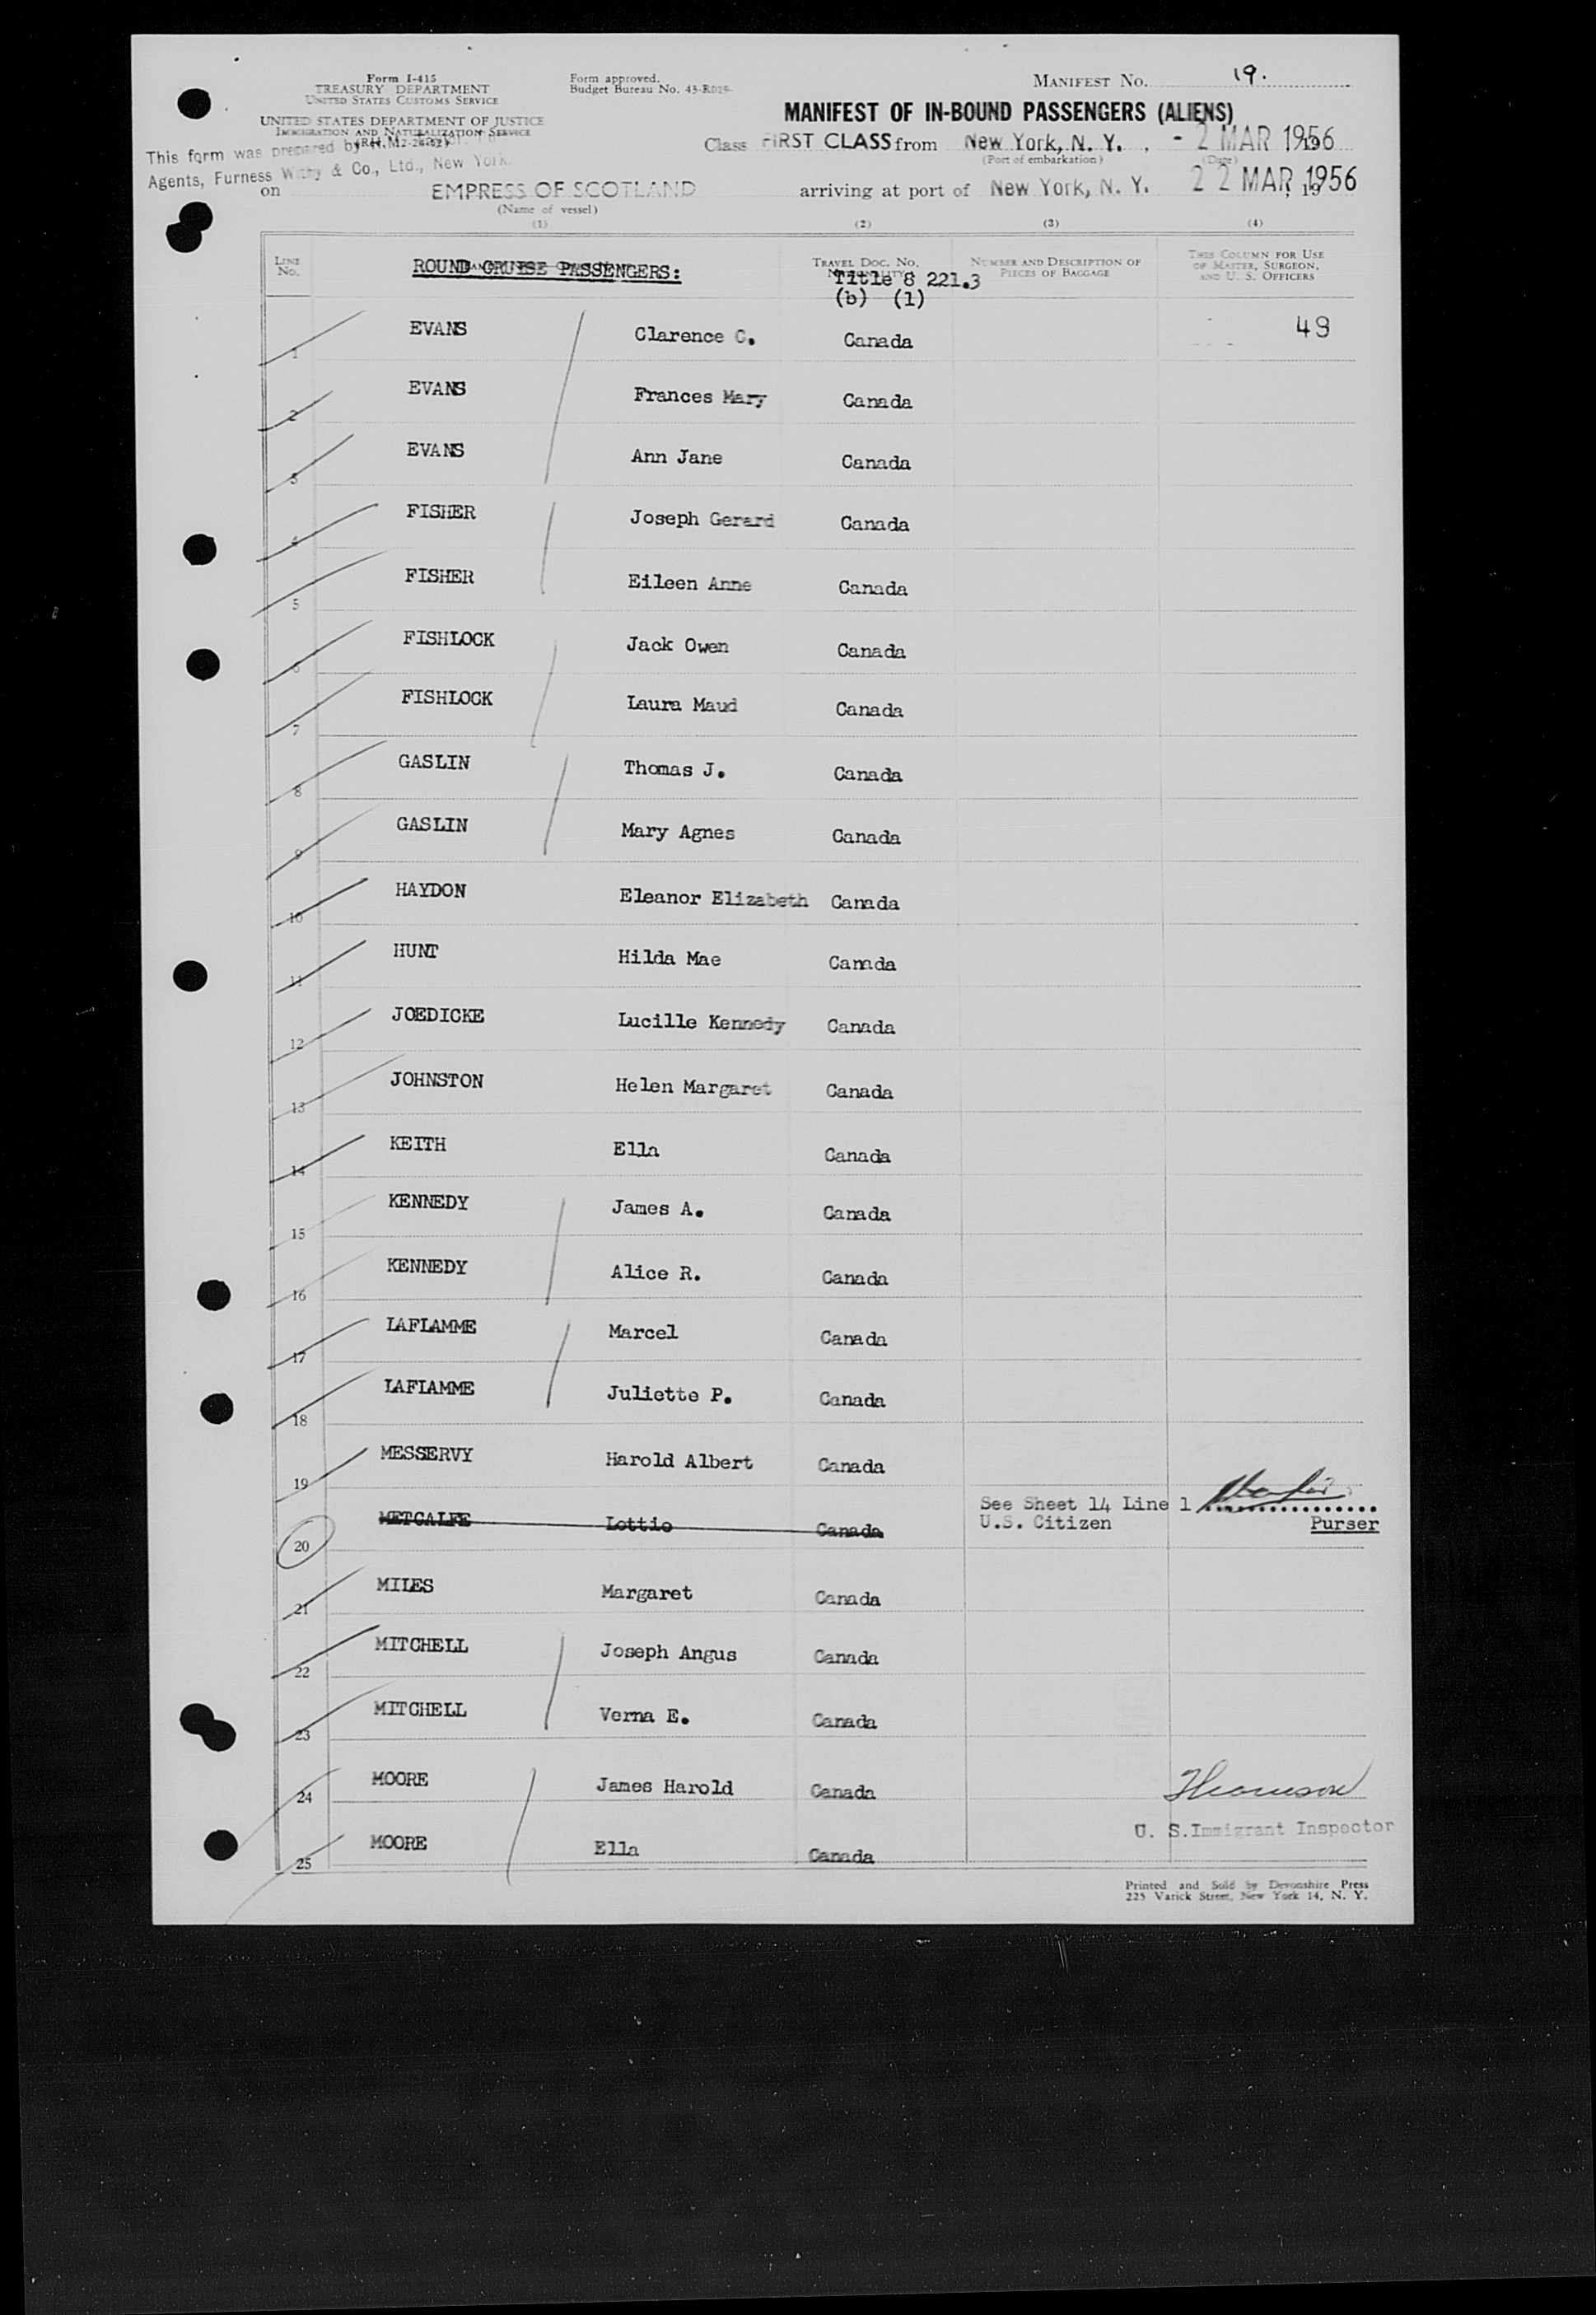 Form I-415
TREASURY DEPARTMENT
UNITED STATES CUSTOMS SERVICE
UNITED STATES DEPARTMENT OF JUSTICE
IMMIGRATION AND NATURALIZATION SERVICE
Form approved.
Budget Bureau No. 43-R019
MANIFEST No. 19.
MANIFEST OF IN-BOUND PASSENGERS (ALIENS)
This form was prepared by
Agents, Furness Withy & Co., Ltd., New York.
Class FIRST CLASS from New York, N. Y. , - 2 MAR 1956
(Port of embarkation) (Date)
on EMPRESS OF SCOTLAND arriving at port of New York, N. Y. 22 MAR 1956
(Name of vessel)
(1) (2) (3) (4)
LINE No. ROUND CRUISE PASSENGERS: TRAVEL DOC. NO. NATIONALITY NUMBER AND DESCRIPTION OF PIECES OF BAGGAGE THIS COLUMN FOR USE OF MASTER, SURGEON, AND U. S. OFFICERS
Title 8 221.3
(b) (1)
1 EVANS Clarence C. Canada 49
2 EVANS Frances Mary Canada
3 EVANS Ann Jane Canada
4 FISHER Joseph Gerard Canada
5 FISHER Eileen Anne Canada
6 FISHLOCK Jack Owen Canada
7 FISHLOCK Laura Maud Canada
8 GASLIN Thomas J. Canada
9 GASLIN Mary Agnes Canada
10 HAYDON Eleanor Elizabeth Canada
11 HUNT Hilda Mae Canada
12 JOEDICKE Lucille Kennedy Canada
13 JOHNSTON Helen Margaret Canada
14 KEITH Ella Canada
15 KENNEDY James A. Canada
16 KENNEDY Alice R. Canada
17 LAFLAMME Marcel Canada
18 LAFLAMME Juliette P. Canada
19 MESSERVY Harold Albert Canada
20 METCALFE Lottie Canada See Sheet 14 Line 1
U.S. Citizen Purser
21 MILES Margaret Canada
22 MITCHELL Joseph Angus Canada
23 MITCHELL Verna E. Canada
24 MOORE James Harold Canada Thomson
U. S. Immigrant Inspector
25 MOORE Ella Canada
Printed and Sold by Devonshire Press
225 Varick Street, New York 14, N. Y.